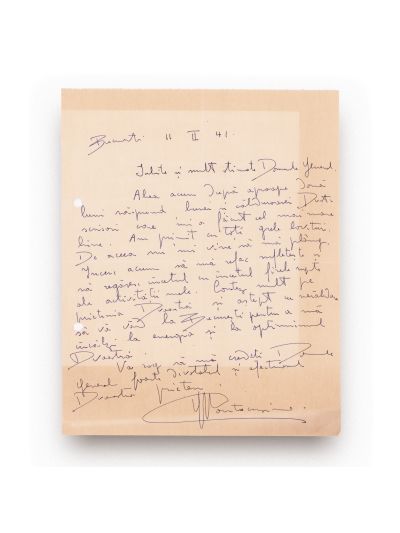 București 11 II 41.
Iubite și mult stimate Domnule General.
Abia acum după aproape două
luni răspund bunei și călduroasei Dvs.
scrisori care mi-a făcut cel mai mare
bine. Am primit cu toții grele lovituri.
De aceea nu-mi vine să mă plâng.
Încerc acum să mă refac sufletește și
să regăsesc încetul cu încetul firele rupte
ale activității mele. Contez mult pe
prietenia Dvoastră și aștept cu nerăbdare
să vă văd la București pentru a mă
încălzi la energia și la optimismul
Dvoastră.
Vă rog să mă credeți Domnule
General foarte devotatul și afectuosul
Dvoastră prieten